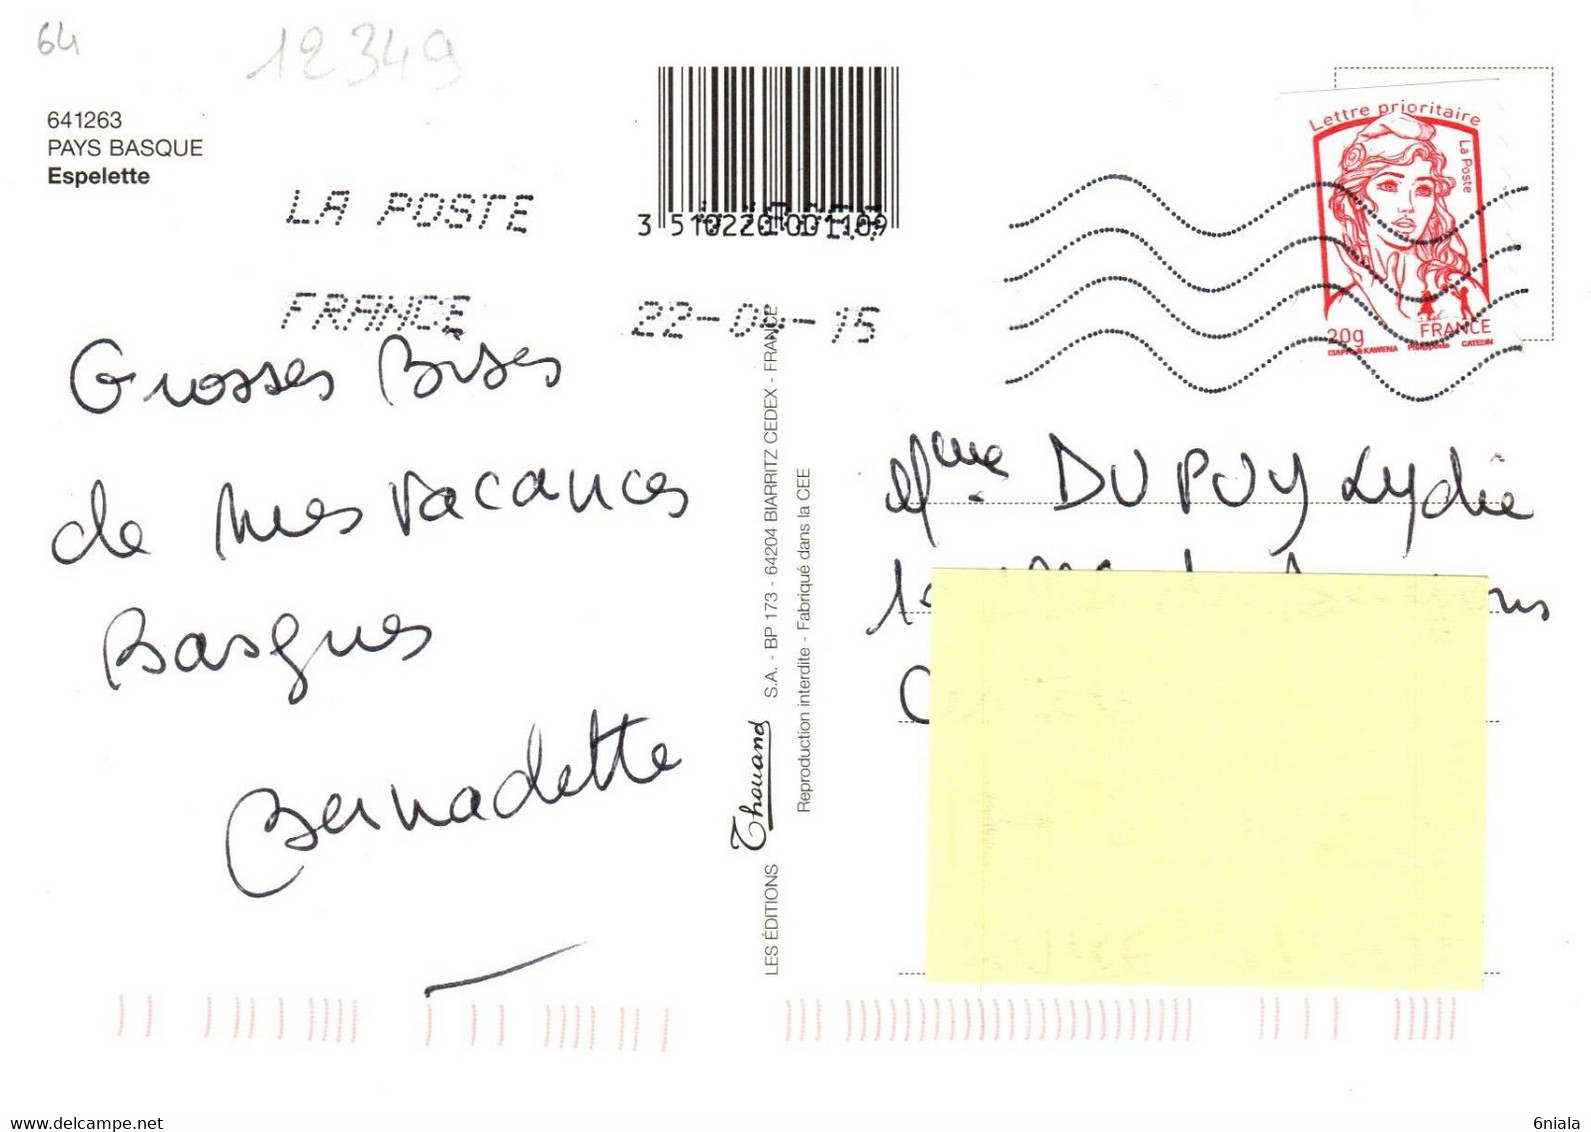 64
12349
641263
PAYS BASQUE
Espelette
LA POSTE
FRANCE
22-04-15
3 510220 001109
Lettre prioritaire
La Poste
20g
FRANCE
CIAPPA & KAWENA Phil@poste CATELIN
Grosses Bises
de mes vacances
Basques
Bernadette
LES ÉDITIONS Thouand S.A. - BP 173 - 64204 BIARRITZ CEDEX - FRANCE
Reproduction interdite - Fabriqué dans la CEE
Mme DUPUY Lydie
Delcampe.net
6niala